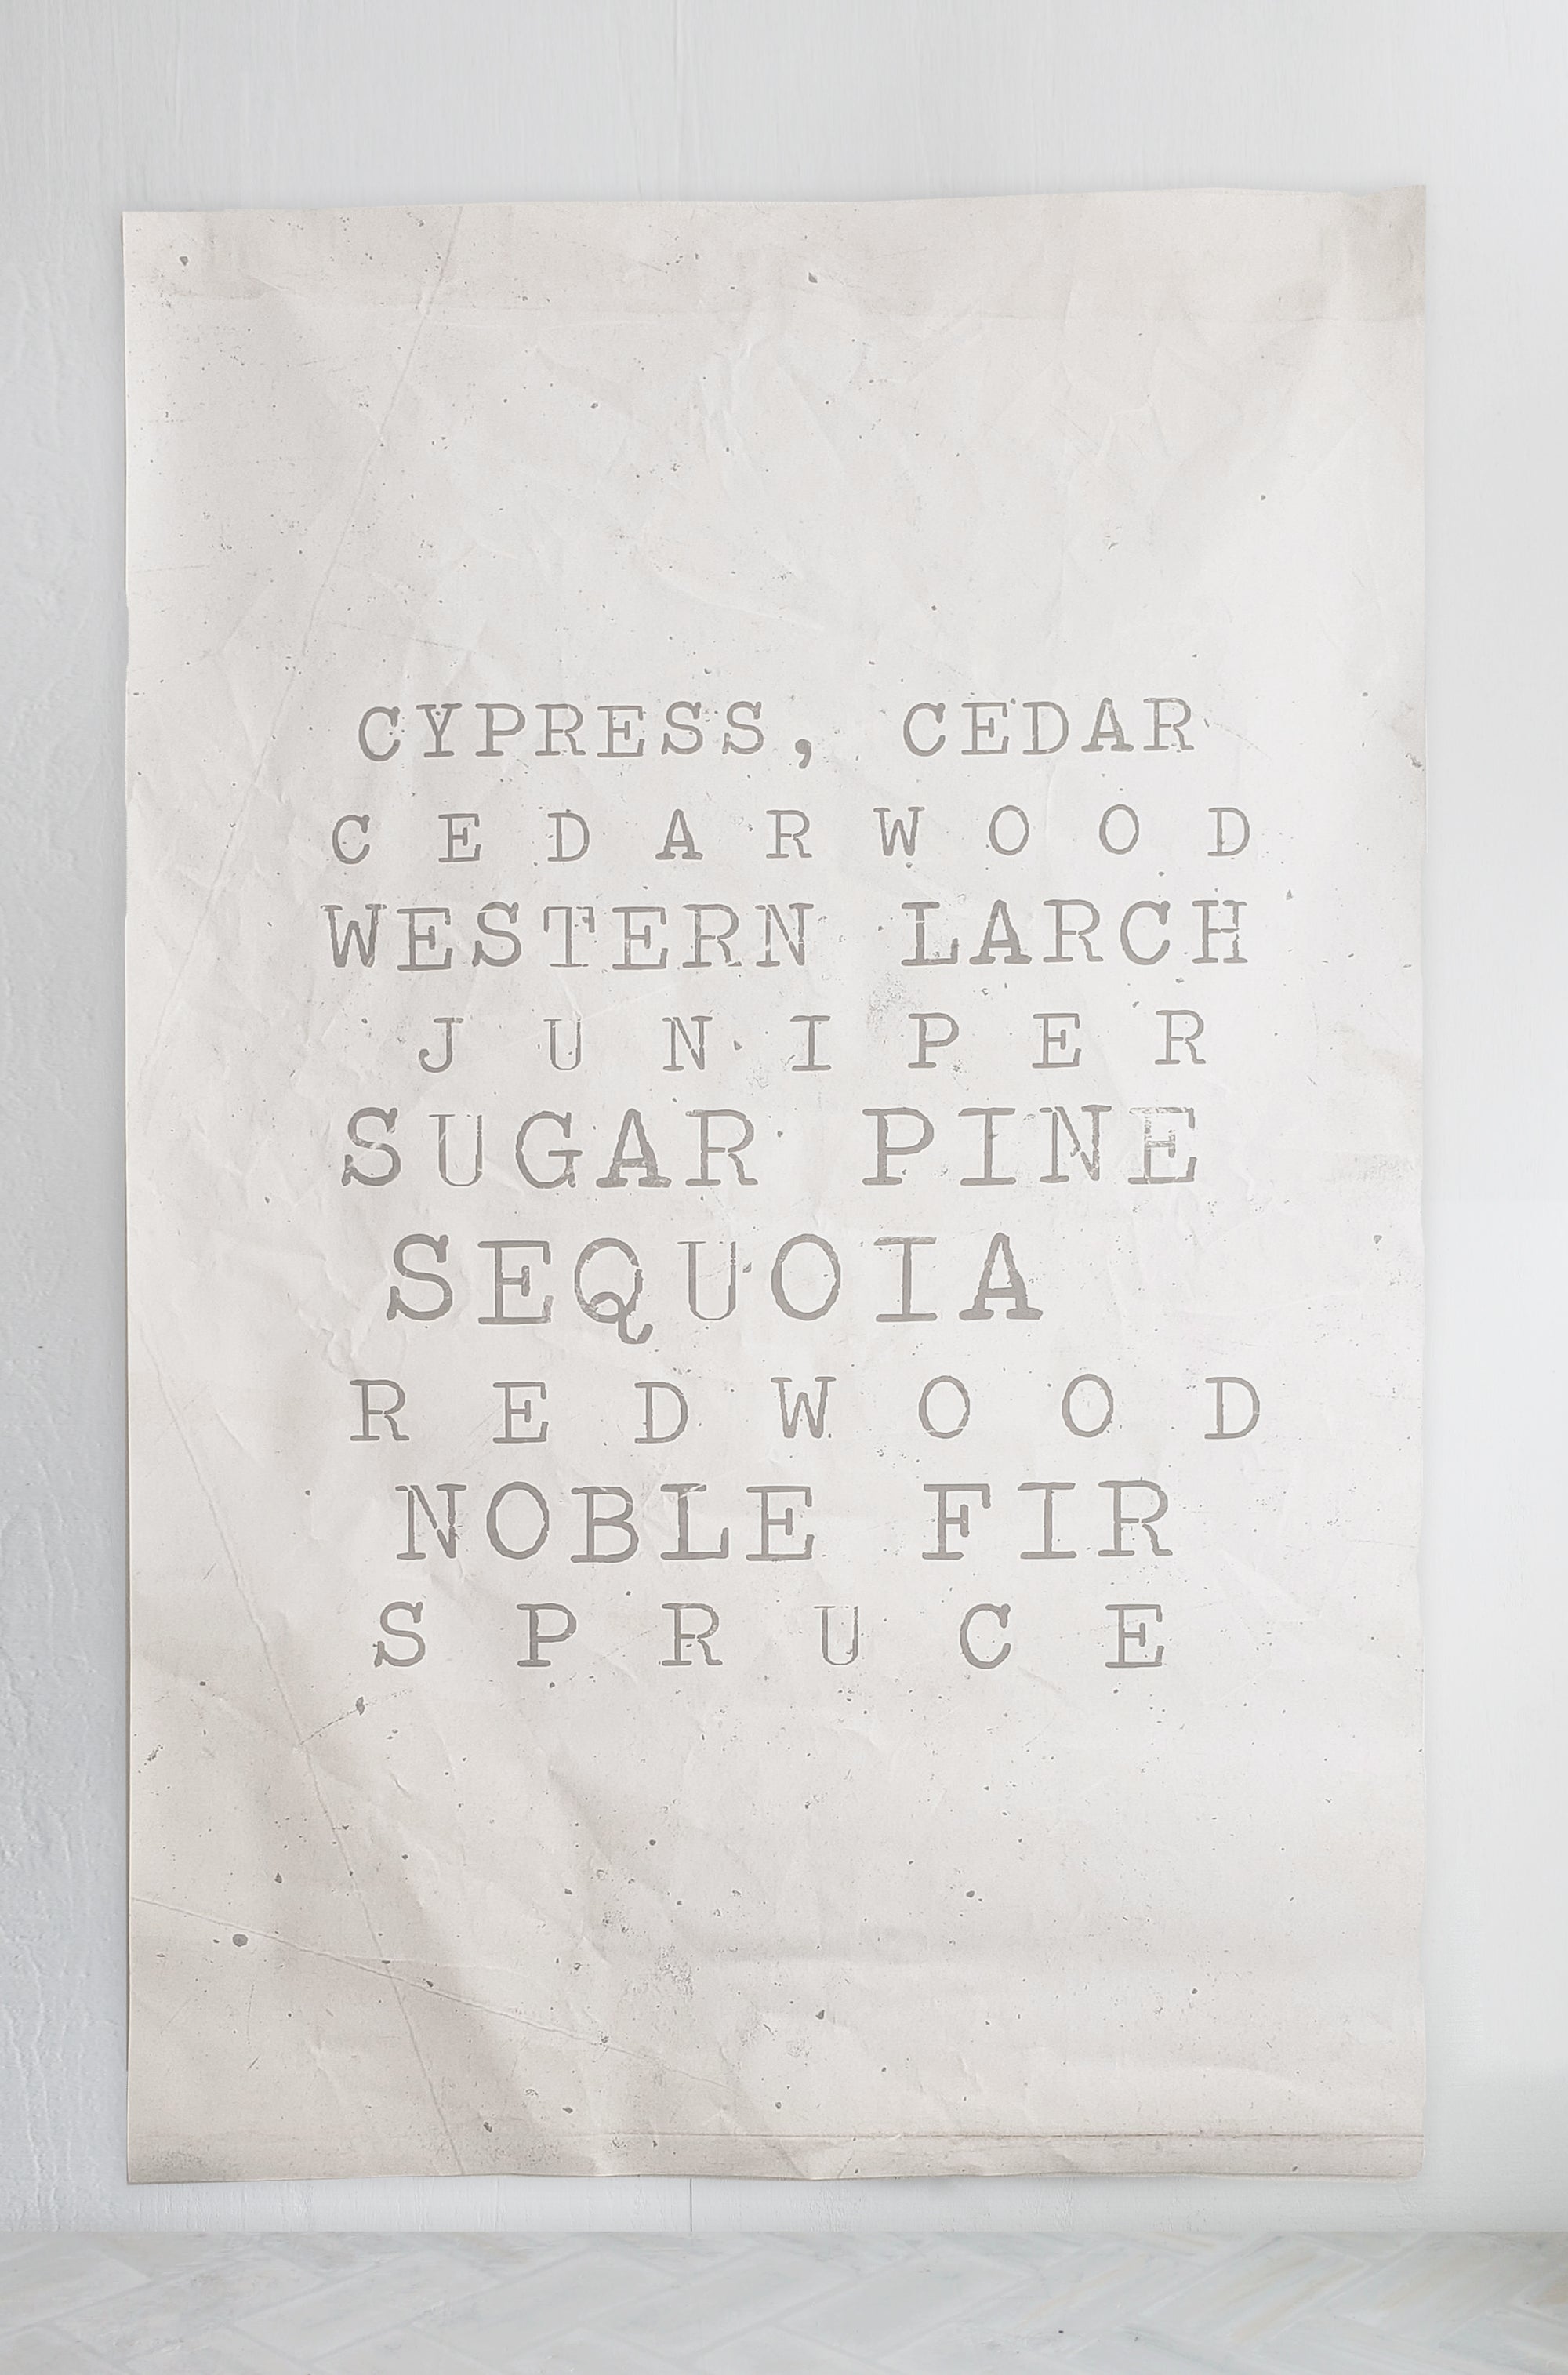 CYPRESS, CEDAR
CEDARWOOD
WESTERN LARCH
JUNIPER
SUGAR PINE
SEQUOIA
REDWOOD
NOBLE FIR
SPRUCE